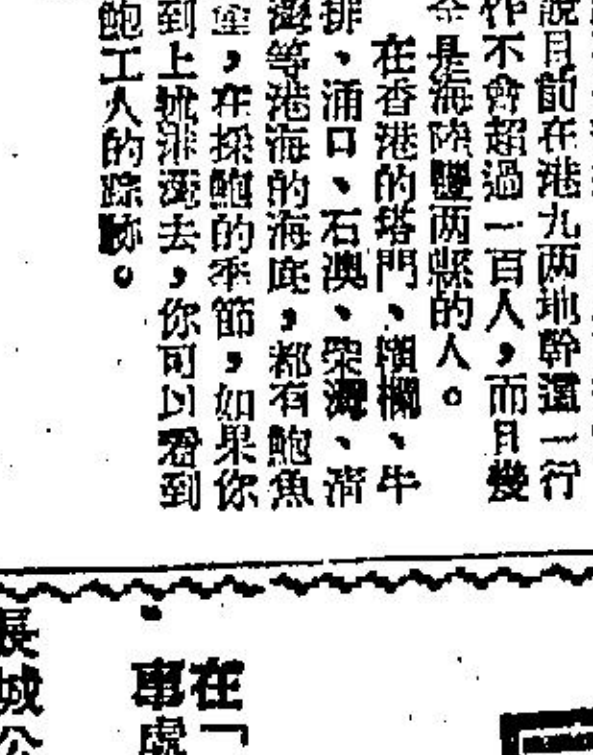 說目前在港九两地幹這一行
作不會超過一百人，而且幾
是海陸豐两縣的人。
在香港的塔門、橫欄、牛
排、涌口、石澳、柴灣、清
灣等港海的海底，都有鮑魚
，在採鮑的季節，如果你
到上述港灣去，你可以看到
鮑工人的踪跡。
在「
事處
長城公